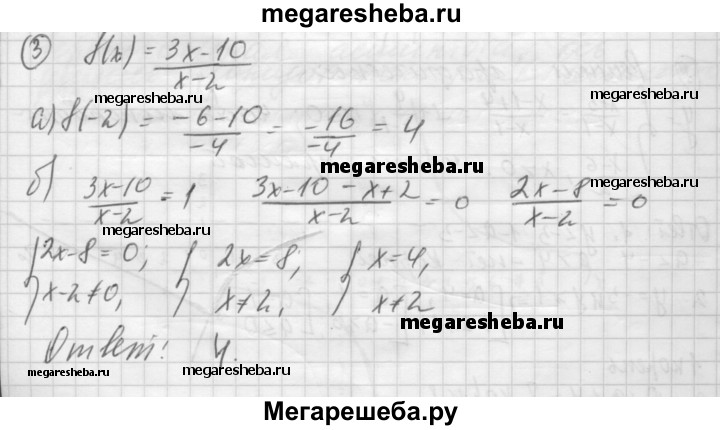 megaresheba.ru
③ f(x) = (3x-10)/(x-2)
megaresheba.ru
megaresheba.ru
а) f(-2) = (-6-10)/(-4) = (-16)/(-4) = 4
megaresheba.ru
б) (3x-10)/(x-2) = 1 (3x-10-x+2)/(x-2) = 0 (2x-8)/(x-2) = 0
megaresheba.ru
megaresheba.ru
{2x-8=0; {2x=8; {x=4,
{x-2≠0, {x≠2, {x≠2
megaresheba.ru
Ответ: 4.
megaresheba.ru
megaresheba.ru
Мегарешеба.ру